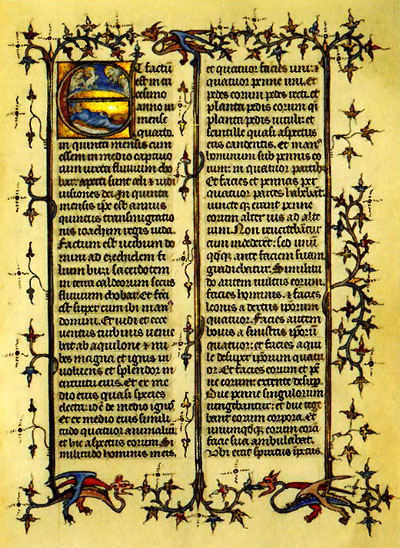 Et factū
est in tri
cesimo
anno in
mense
quarto
in quinta mensis cum
essem in medio captiuo
rum iuxta fluuium cho
bar: apti sunt celi & uidi
uisiones dei. In quinta
mensis ipse est annus
quintus transmigratio
nis ioachim regis iuda.
Factum est uerbum do
mini ad ezechielem fi
lium buzi sacerdotem
in terra caldeorum secus
fluuium chobar: et fca
est super eum ibi manꝰ
domini. Et uidi et ecce
uentus turbinis uenie
bat ab aquilone & nu
bes magna et ignis in
uoluens et splendor in
circuitu eius. et ex me
dio eius quasi species
electri: id ē de medio ignis
et ex medio eius simili
tudo quatuor animaliū:
et hic aspectus eorum. Si
militudo hominis in eis.
et quatuor facies uni: &
quatuor penne uni. et
pedes eorum pedes recti: et
planta pedis eorum qͣsi
planta pedis uituli: et
scintille quasi aspectus
eris candentis. et manꝰ
hominum sub pennis eo
rum: in quatuor partibꝫ
Et facies et pennas per
quatuor partes habebāt.
iuncteqꝫ erant penne
eorum alterius ad alte
rum. Non reuertebātur
cum incederent: sed unū
qdqꝫ ante faciem suam
gradiebatur. Similitu
do autem uultus eorum:
facies hominis. & facies
leonis a dextris ipsorum
quatuor. Facies autem
bouis a sinistris ipsorū
quatuor: et facies aqui
le desuper ipsorum quatu
or. et facies eorum et pē
ne eorum: extente desuꝑ.
Due penne singulorum
iungebantur: et due tege
bant corpora eorum. et
unumqdqꝫ eorum corā
facie sua ambulabat.
Vbi erat spiritus īpetus.